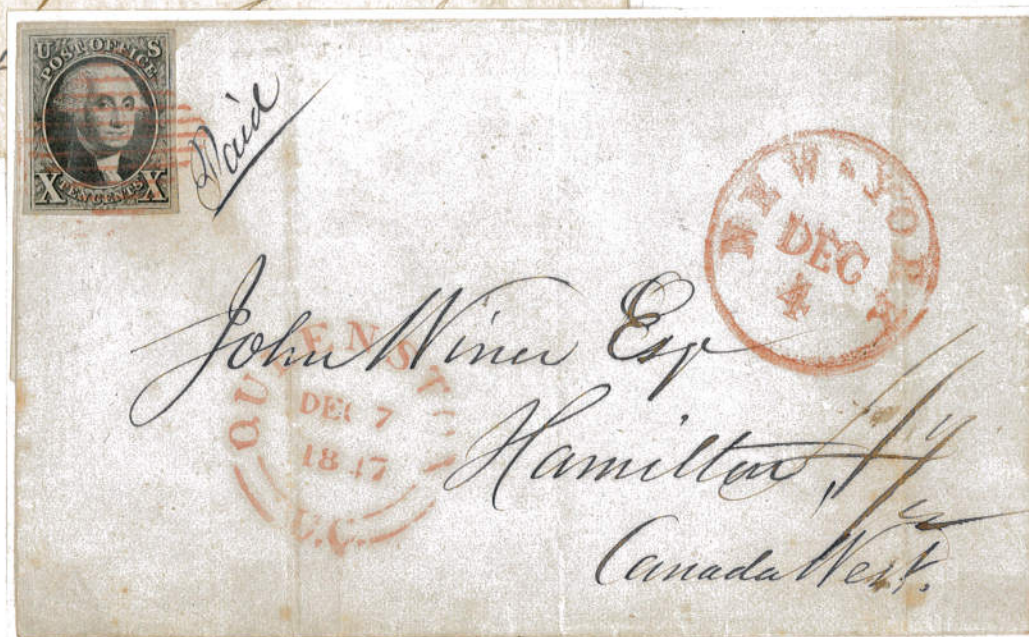 U S
POST OFFICE
X TEN CENTS X
Paid
NEW-YORK
DEC
4
John Winer Esqr
QUEENSTON
DEC 7
1847
U.C.
Hamilton,
Canada West.